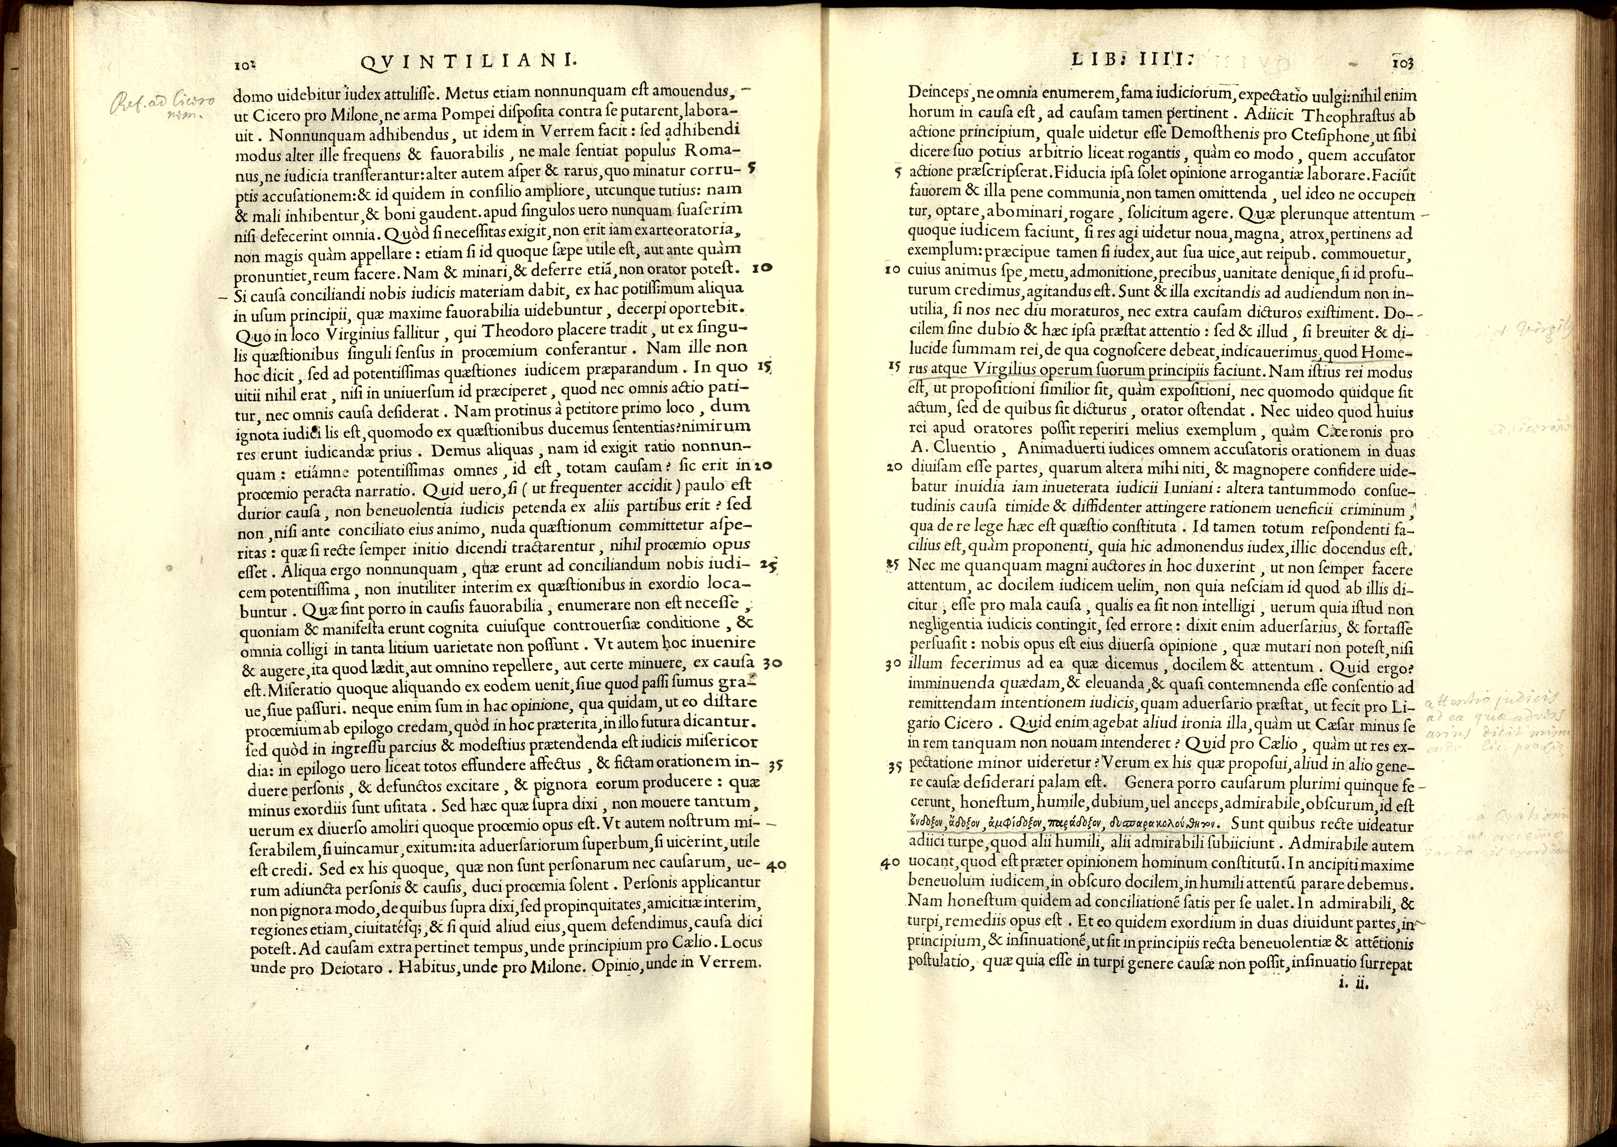 102 QVINTILIANI.
Ref. ad Cicero
nem.
domo uidebitur iudex attulisse. Metus etiam nonnunquam est amouendus,
ut Cicero pro Milone, ne arma Pompei disposita contra se putarent, labora-
uit. Nonnunquam adhibendus, ut idem in Verrem facit: sed adhibendi
modus alter ille frequens & fauorabilis, ne male sentiat populus Roma-
nus, ne iudicia transferantur: alter autem asper & rarus, quo minatur corru- 5
ptis accusationem: & id quidem in consilio ampliore, utcunque tutius: nam
& mali inhibentur, & boni gaudent. apud singulos uero nunquam suaserim
nisi defecerint omnia. Quòd si necessitas exigit, non erit iam ex arte oratoria,
non magis quàm appellare: etiam si id quoque sæpe utile est, aut ante quàm
pronuntiet, reum facere. Nam & minari, & deferre etiã, non orator potest. 10
Si causa conciliandi nobis iudicis materiam dabit, ex hac potissimum aliqua
in usum principii, quæ maxime fauorabilia uidebuntur, decerpi oportebit.
Quo in loco Virginius fallitur, qui Theodoro placere tradit, ut ex singu-
lis quæstionibus singuli sensus in proœmium conferantur. Nam ille non
hoc dicit, sed ad potentissimas quæstiones iudicem præparandum. In quo 15
uitii nihil erat, nisi in uniuersum id præciperet, quod nec omnis actio pati-
tur, nec omnis causa desiderat. Nam protinus à petitore primo loco, dum
ignota iudici lis est, quomodo ex quæstionibus ducemus sententias? nimirum
res erunt iudicandæ prius. Demus aliquas, nam id exigit ratio nonnun-
quam: etiámne potentissimas omnes, id est, totam causam? sic erit in 20
proœmio peracta narratio. Quid uero, si (ut frequenter accidit) paulo est
durior causa, non beneuolentia iudicis petenda ex aliis partibus erit? sed
non, nisi ante conciliato eius animo, nuda quæstionum committetur aspe-
ritas: quæ si recte semper initio dicendi tractarentur, nihil proœmio opus
esset. Aliqua ergo nonnunquam, quæ erunt ad conciliandum nobis iudi- 25
cem potentissima, non inutiliter interim ex quæstionibus in exordio loca-
buntur. Quæ sint porro in causis fauorabilia, enumerare non est necesse,
quoniam & manifesta erunt cognita cuiusque controuersiæ conditione, &
omnia colligi in tanta litium uarietate non possunt. Vt autem hoc inuenire
& augere, ita quod lædit, aut omnino repellere, aut certe minuere, ex causa 30
est. Miseratio quoque aliquando ex eodem uenit, siue quod passi sumus gra-
ue, siue passuri. neque enim sum in hac opinione, qua quidam, ut eo distare
proœmium ab epilogo credam, quòd in hoc præterita, in illo futura dicantur.
sed quòd in ingressu parcius & modestius prætendenda est iudicis misericor
dia: in epilogo uero liceat totos effundere affectus, & fictam orationem in- 35
duere personis, & defunctos excitare, & pignora eorum producere: quæ
minus exordiis sunt usitata. Sed hæc quæ supra dixi, non mouere tantum,
uerum ex diuerso amoliri quoque procemio opus est. Vt autem nostrum mi-
serabilem, si uincamur, exitum: ita aduersariorum superbum, si uicerint, utile
est credi. Sed ex his quoque, quæ non sunt personarum nec causarum, ue- 40
rum adiuncta personis & causis, duci procemia solent. Personis applicantur
non pignora modo, de quibus supra dixi, sed propinquitates, amicitiæ interim,
regiones etiam, ciuitatésq;, & si quid aliud eius, quem defendimus, causa dici
potest. Ad causam extra pertinet tempus, unde principium pro Cælio. Locus
unde pro Deiotaro. Habitus, unde pro Milone. Opinio, unde in Verrem.
LIB. IIII. 103
Deinceps, ne omnia enumerem, fama iudiciorum, expectatio uulgi: nihil enim
horum in causa est, ad causam tamen pertinent. Adiicit Theophrastus ab
actione principium, quale uidetur esse Demosthenis pro Ctesiphone, ut sibi
dicere suo potius arbitrio liceat rogantis, quàm eo modo, quem accusator
5 actione præscripserat. Fiducia ipsa solet opinione arrogantiæ laborare. Faciũt
fauorem & illa pene communia, non tamen omittenda, uel ideo ne occupen
tur, optare, abominari, rogare, solicitum agere. Quæ plerunque attentum
quoque iudicem faciunt, si res agi uidetur noua, magna, atrox, pertinens ad
exemplum: præcipue tamen si iudex, aut sua uice, aut reipub. commouetur,
10 cuius animus spe, metu, admonitione, precibus, uanitate denique, si id profu-
turum credimus, agitandus est. Sunt & illa excitandis ad audiendum non in-
utilia, si nos nec diu moraturos, nec extra causam dicturos existiment. Do-
cilem sine dubio & hæc ipsa præstat attentio: sed & illud, si breuiter & di-
lucide summam rei, de qua cognoscere debeat, indicauerimus, quod Home-
15 rus atque Virgilius operum suorum principiis faciunt. Nam istius rei modus
est, ut propositioni similior sit, quàm expositioni, nec quomodo quidque sit
actum, sed de quibus sit dicturus, orator ostendat. Nec uideo quod huius
rei apud oratores possit reperiri melius exemplum, quàm Ciceronis pro
A. Cluentio, Animaduerti iudices omnem accusatoris orationem in duas
20 diuisam esse partes, quarum altera mihi niti, & magnopere confidere uide-
batur inuidia iam inueterata iudicii Iuniani: altera tantummodo consue-
tudinis causa timide & diffidenter attingere rationem ueneficii criminum,
qua de re lege hæc est quæstio constituta. Id tamen totum respondenti fa-
cilius est, quàm proponenti, quia hic admonendus iudex, illic docendus est.
25 Nec me quanquam magni auctores in hoc duxerint, ut non semper facere
attentum, ac docilem iudicem uelim, non quia nesciam id quod ab illis di-
citur, esse pro mala causa, qualis ea sit non intelligi, uerum quia istud non
negligentia iudicis contingit, sed errore: dixit enim aduersarius, & fortasse
persuasit: nobis opus est eius diuersa opinione, quæ mutari non potest, nisi
30 illum fecerimus ad ea quæ dicemus, docilem & attentum. Quid ergo?
imminuenda quædam, & eleuanda, & quasi contemnenda esse consentio ad
remittendam intentionem iudicis, quam aduersario præstat, ut fecit pro Li-
gario Cicero. Quid enim agebat aliud ironia illa, quàm ut Cæsar minus se
in rem tanquam non nouam intenderet? Quid pro Cælio, quàm ut res ex-
35 pectatione minor uideretur? Verum ex his quæ proposui, aliud in alio gene-
re causæ desiderari palam est. Genera porro causarum plurimi quinque fe-
cerunt, honestum, humile, dubium, uel anceps, admirabile, obscurum, id est
ἔνδοξον, ἄδοξον, ἀμφίδοξον, παράδοξον, δυσπαρακολούθητον. Sunt quibus recte uideatur
adiici turpe, quod alii humili, alii admirabili subiiciunt. Admirabile autem
40 uocant, quod est præter opinionem hominum constitutũ. In ancipiti maxime
beneuolum iudicem, in obscuro docilem, in humili attentũ parare debemus.
Nam honestum quidem ad conciliationẽ satis per se ualet. In admirabili, &
turpi, remediis opus est. Et eo quidem exordium in duas diuidunt partes, in
principium, & insinuationẽ, ut sit in principiis recta beneuolentiæ & attẽtionis
postulatio, quæ quia esse in turpi genere causæ non possit, insinuatio surrepat
i. ii.
attentio judicis
ad ea quæ advers
arius dixit